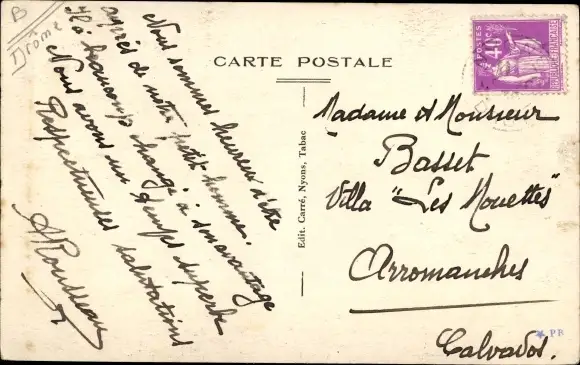 B
Drôme
CARTE POSTALE
POSTES
40
RÉPUBLIQUE FRANÇAISE
Nous sommes heureux d'être
auprès de notre petit homme.
Il a beaucoup changé à son avantage
Nous avons un temps superbe
Respectueuses salutations
Rousseau
Edit. Carré, Nyons, Tabac
Madame et Monsieur
Basset
Villa "Les Mouettes"
Arromanches
Calvados.
PB